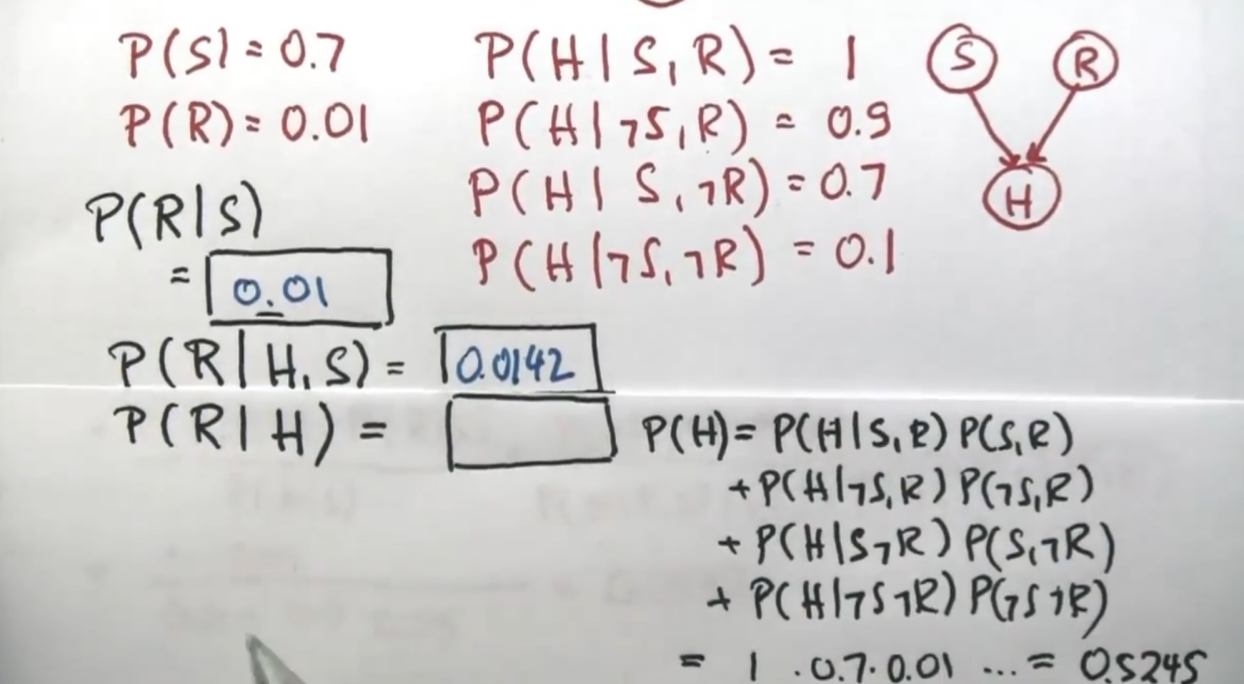 P(S) = 0.7
P(R) = 0.01
P(H | S, R) = 1
P(H | ¬S, R) = 0.9
P(H | S, ¬R) = 0.7
P(H | ¬S, ¬R) = 0.1
S R
H
P(R | S)
= 0.01
P(R | H, S) = 0.0142
P(R | H) =
P(H) = P(H | S, R) P(S, R)
+ P(H | ¬S, R) P(¬S, R)
+ P(H | S ¬R) P(S, ¬R)
+ P(H | ¬S ¬R) P(¬S ¬R)
= 1 . 0.7 . 0.01 ... = 0.5245